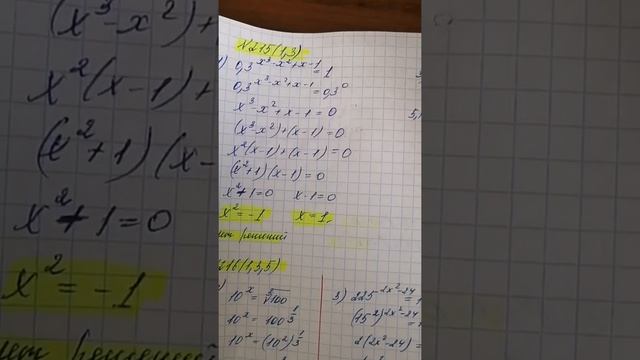 (x³-x²)+(
x²(x-1)+
(x²+1)(x-
x²+1=0
x²=-1
нет решений
№215(1,3)
1)
0,3^(x³-x²+x-1)=1
0,3^(x³-x²+x-1)=0,3⁰
x³-x²+x-1=0
(x³-x²)+(x-1)=0
x²(x-1)+(x-1)=0
(x²+1)(x-1)=0
x²+1=0 x-1=0
x²=-1 x=1
нет решений
216(1,3,5)
10^x=⁵√100
10^x=100^(1/5)
10^x=(10²)^(1/5)
3) 225^(2x²-24)=1
(15²)^(2x²-24)=
2(2x²-24)=